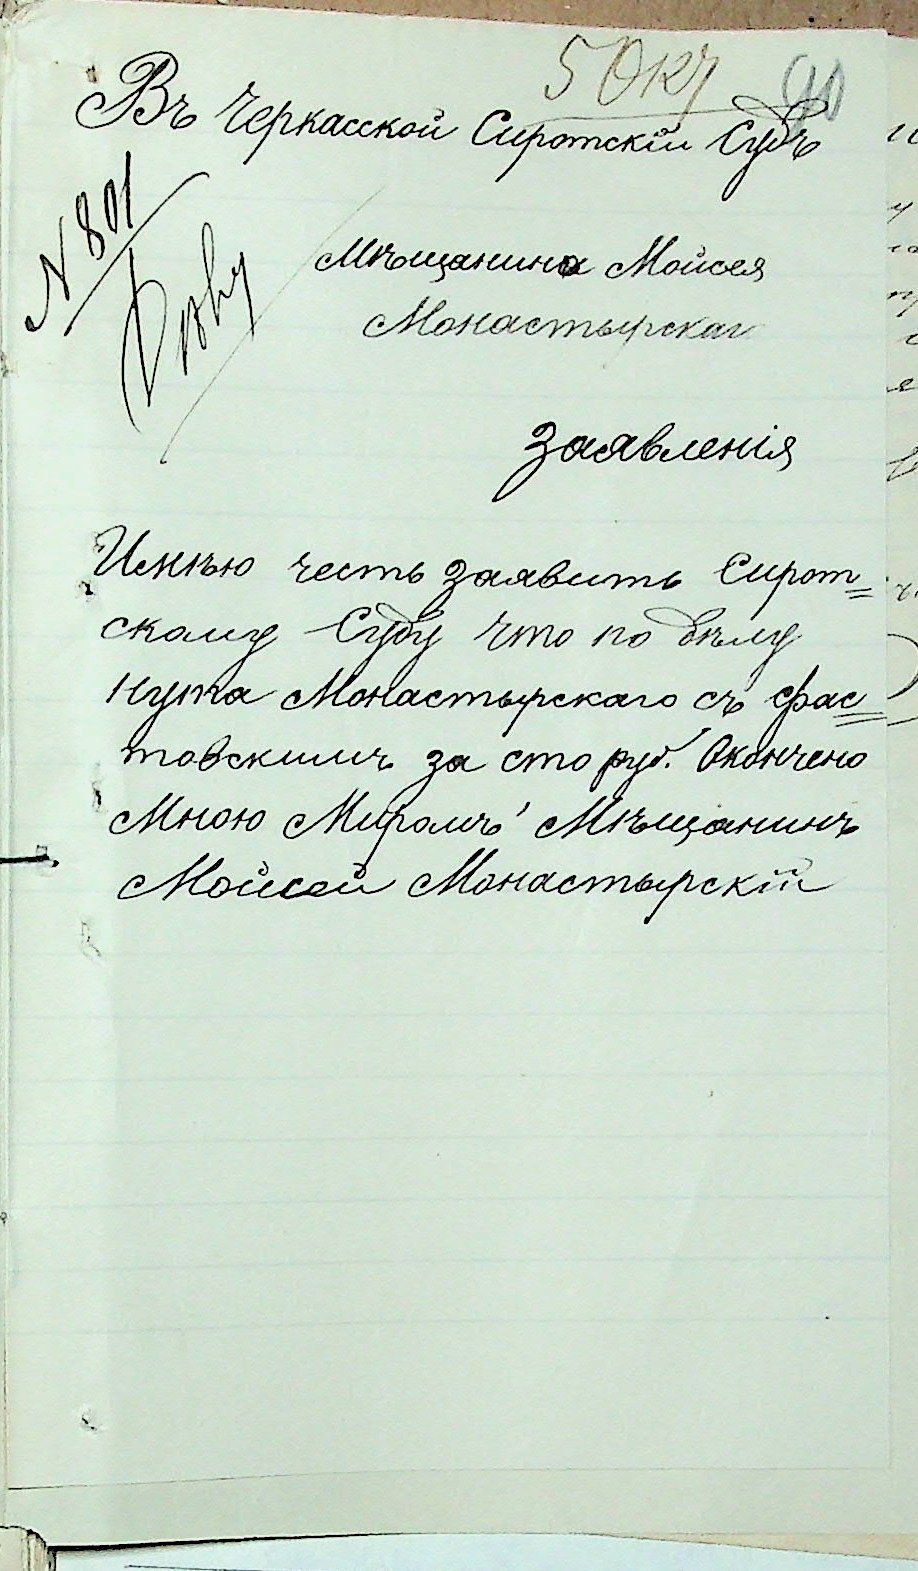 5 Окт
90
Въ Черкасской Сиротскій Судъ
N 801
Мѣщанина Мойсея
Монастырскаг
Заявленія
Имѣю честь заявить Сирот=
скому Суду что по дѣлу
Нута Монастырскаго съ Фас=
товскимъ за сто руб. Окончено
Мною Миромъ Мѣщанинъ
Мойсей Монастырскій